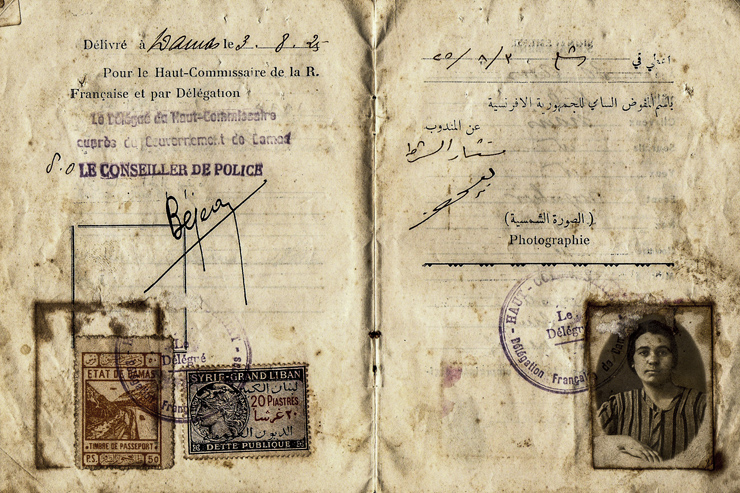 Délivré à Damas le 3. 8. 25
Pour le Haut-Commissaire de la R.
Française et par Délégation
Le Délégué du Haut-Commissaire
auprès du Gouvernement de Damas
LE CONSEILLER DE POLICE
Le
Délégué
50 50
ETAT DE DAMAS
TIMBRE DE PASSEPORT
P.S. 50
SYRIE-GRAND LIBAN
لبنان الكبير
20 PIASTRES
٢٠ غرشا
DETTE PUBLIQUE
في ٢٥/٨/٣
باسم المفوض السامي للجمهورية الافرنسية
عن المندوب
مستشار الشرطة
(الصورة الشمسية)
Photographie
HAUT-
Le
Délégué
Délégation Française de